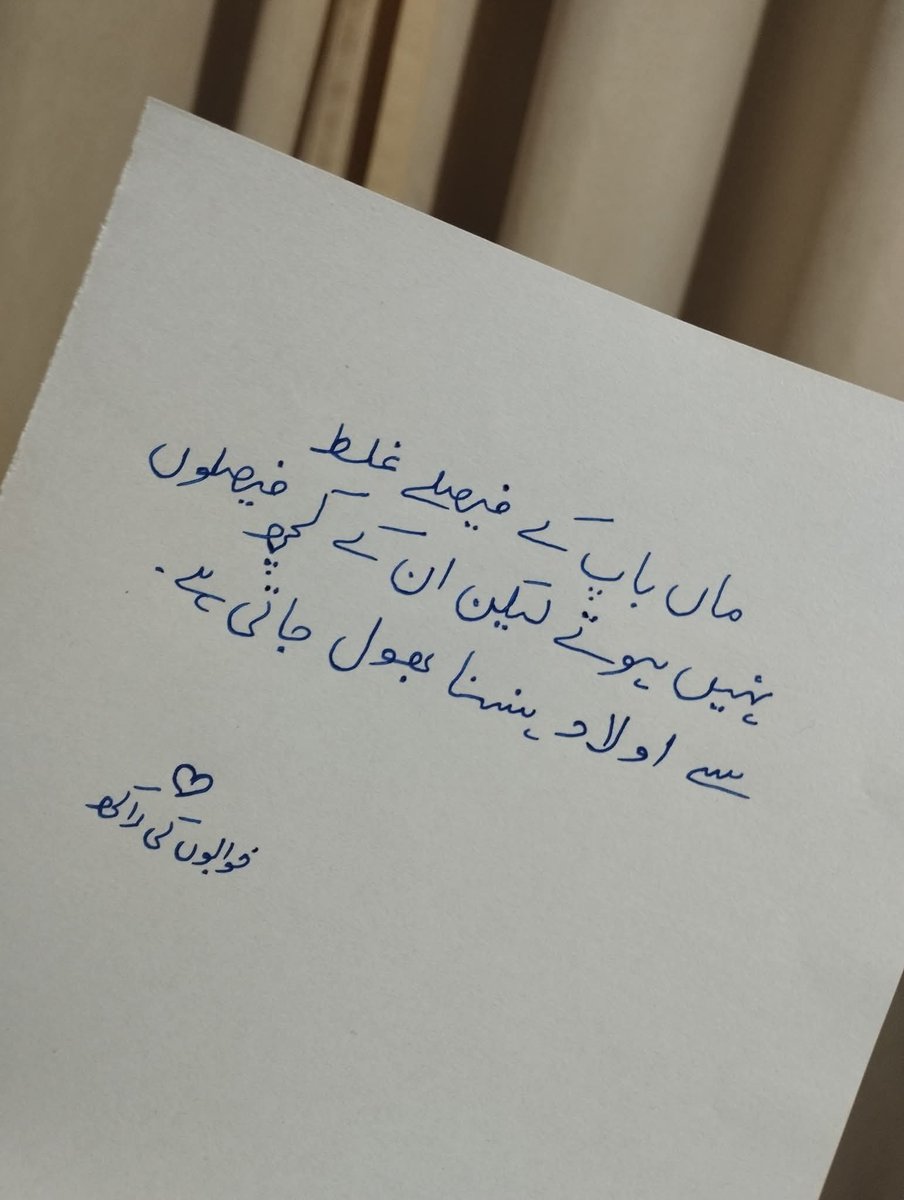 ماں باپ کے فیصلے غلط
نہیں ہوتے لیکن ان کے کچھ فیصلوں
سے اولاد ہنسنا بھول جاتی ہے۔
خوابوں کی راکھ